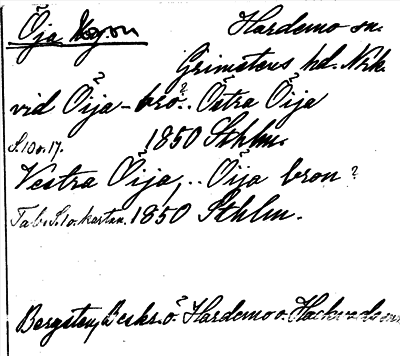 Öja Hardemo sn.
Grimstens hd. Nrk.
vid Öija-bro?.. Östra Öija
S. 10 o. 17. 1850 Sthlm.
Vestra Öija, .. Öija bron?
Tab. S. 1 o. kartan. 1850 Sthlm.
Bergsten, Beskr. ö. Hardemo o. Hackvads sn